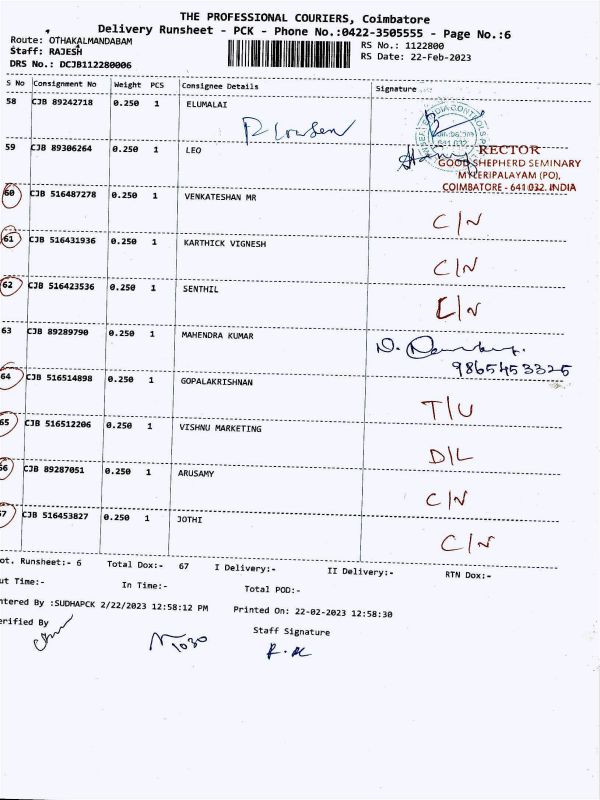 THE PROFESSIONAL COURIERS, Coimbatore
Delivery Runsheet - PCK - Phone No.:0422-3505555 - Page No.:6
Route: OTHAKALMANDABAM
RS No.: 1122800
Staff: RAJESH
RS Date: 22-Feb-2023
DRS No.: DCJB112280006
S No Consignment No Weight PCS Consignee Details Signature
58 CJB 89242718 0.250 1 ELUMALAI
59 CJB 89306264 0.250 1 LEO
RECTOR
GOOD SHEPHERD SEMINARY
MYLERIPALAYAM (PO),
COIMBATORE - 641 032. INDIA
60 CJB 516487278 0.250 1 VENKATESHAN MR
C/N
61 CJB 516431936 0.250 1 KARTHICK VIGNESH
C/N
62 CJB 516423536 0.250 1 SENTHIL
C/N
63 CJB 89289790 0.250 1 MAHENDRA KUMAR
9865453325
64 CJB 516514898 0.250 1 GOPALAKRISHNAN
T/U
65 CJB 516512206 0.250 1 VISHNU MARKETING
D/L
66 CJB 89287051 0.250 1 ARUSAMY
C/N
67 CJB 516453827 0.250 1 JOTHI
C/N
ot. Runsheet:- 6 Total Dox:- 67 I Delivery:- II Delivery:- RTN Dox:-
ut Time:- In Time:- Total POD:-
ntered By :SUDHAPCK 2/22/2023 12:58:12 PM Printed On: 22-02-2023 12:58:30
erified By Staff Signature